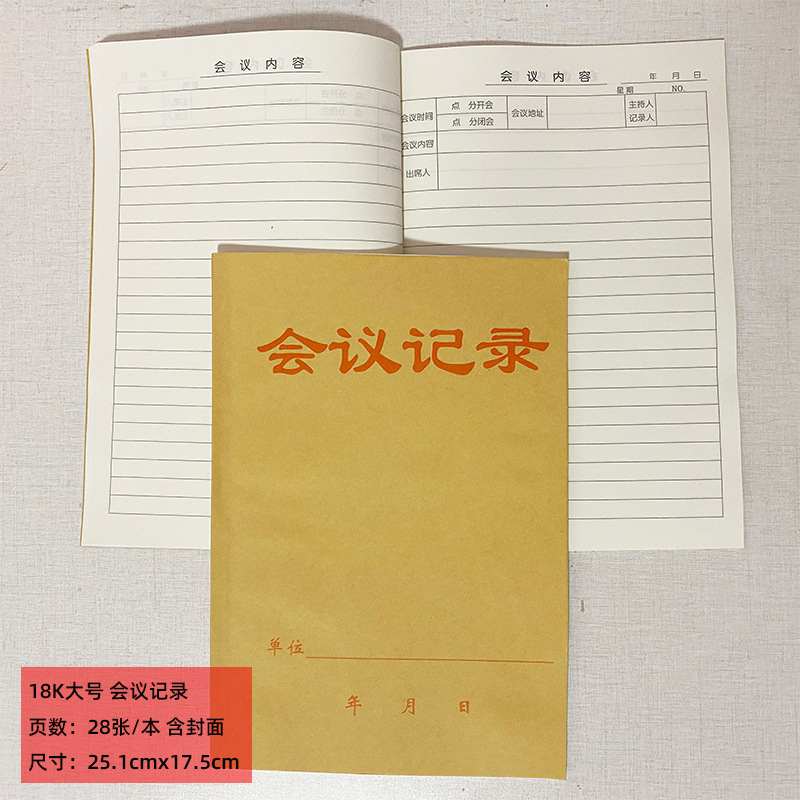 会议内容
会议内容
年 月 日
星期 NO.
会议时间 点 分开会 会议地址 主持人
点 分闭会 记录人
会议内容
出席人
会议记录
单位
年 月 日
18K大号 会议记录
页数：28张/本 含封面
尺寸：25.1cmx17.5cm